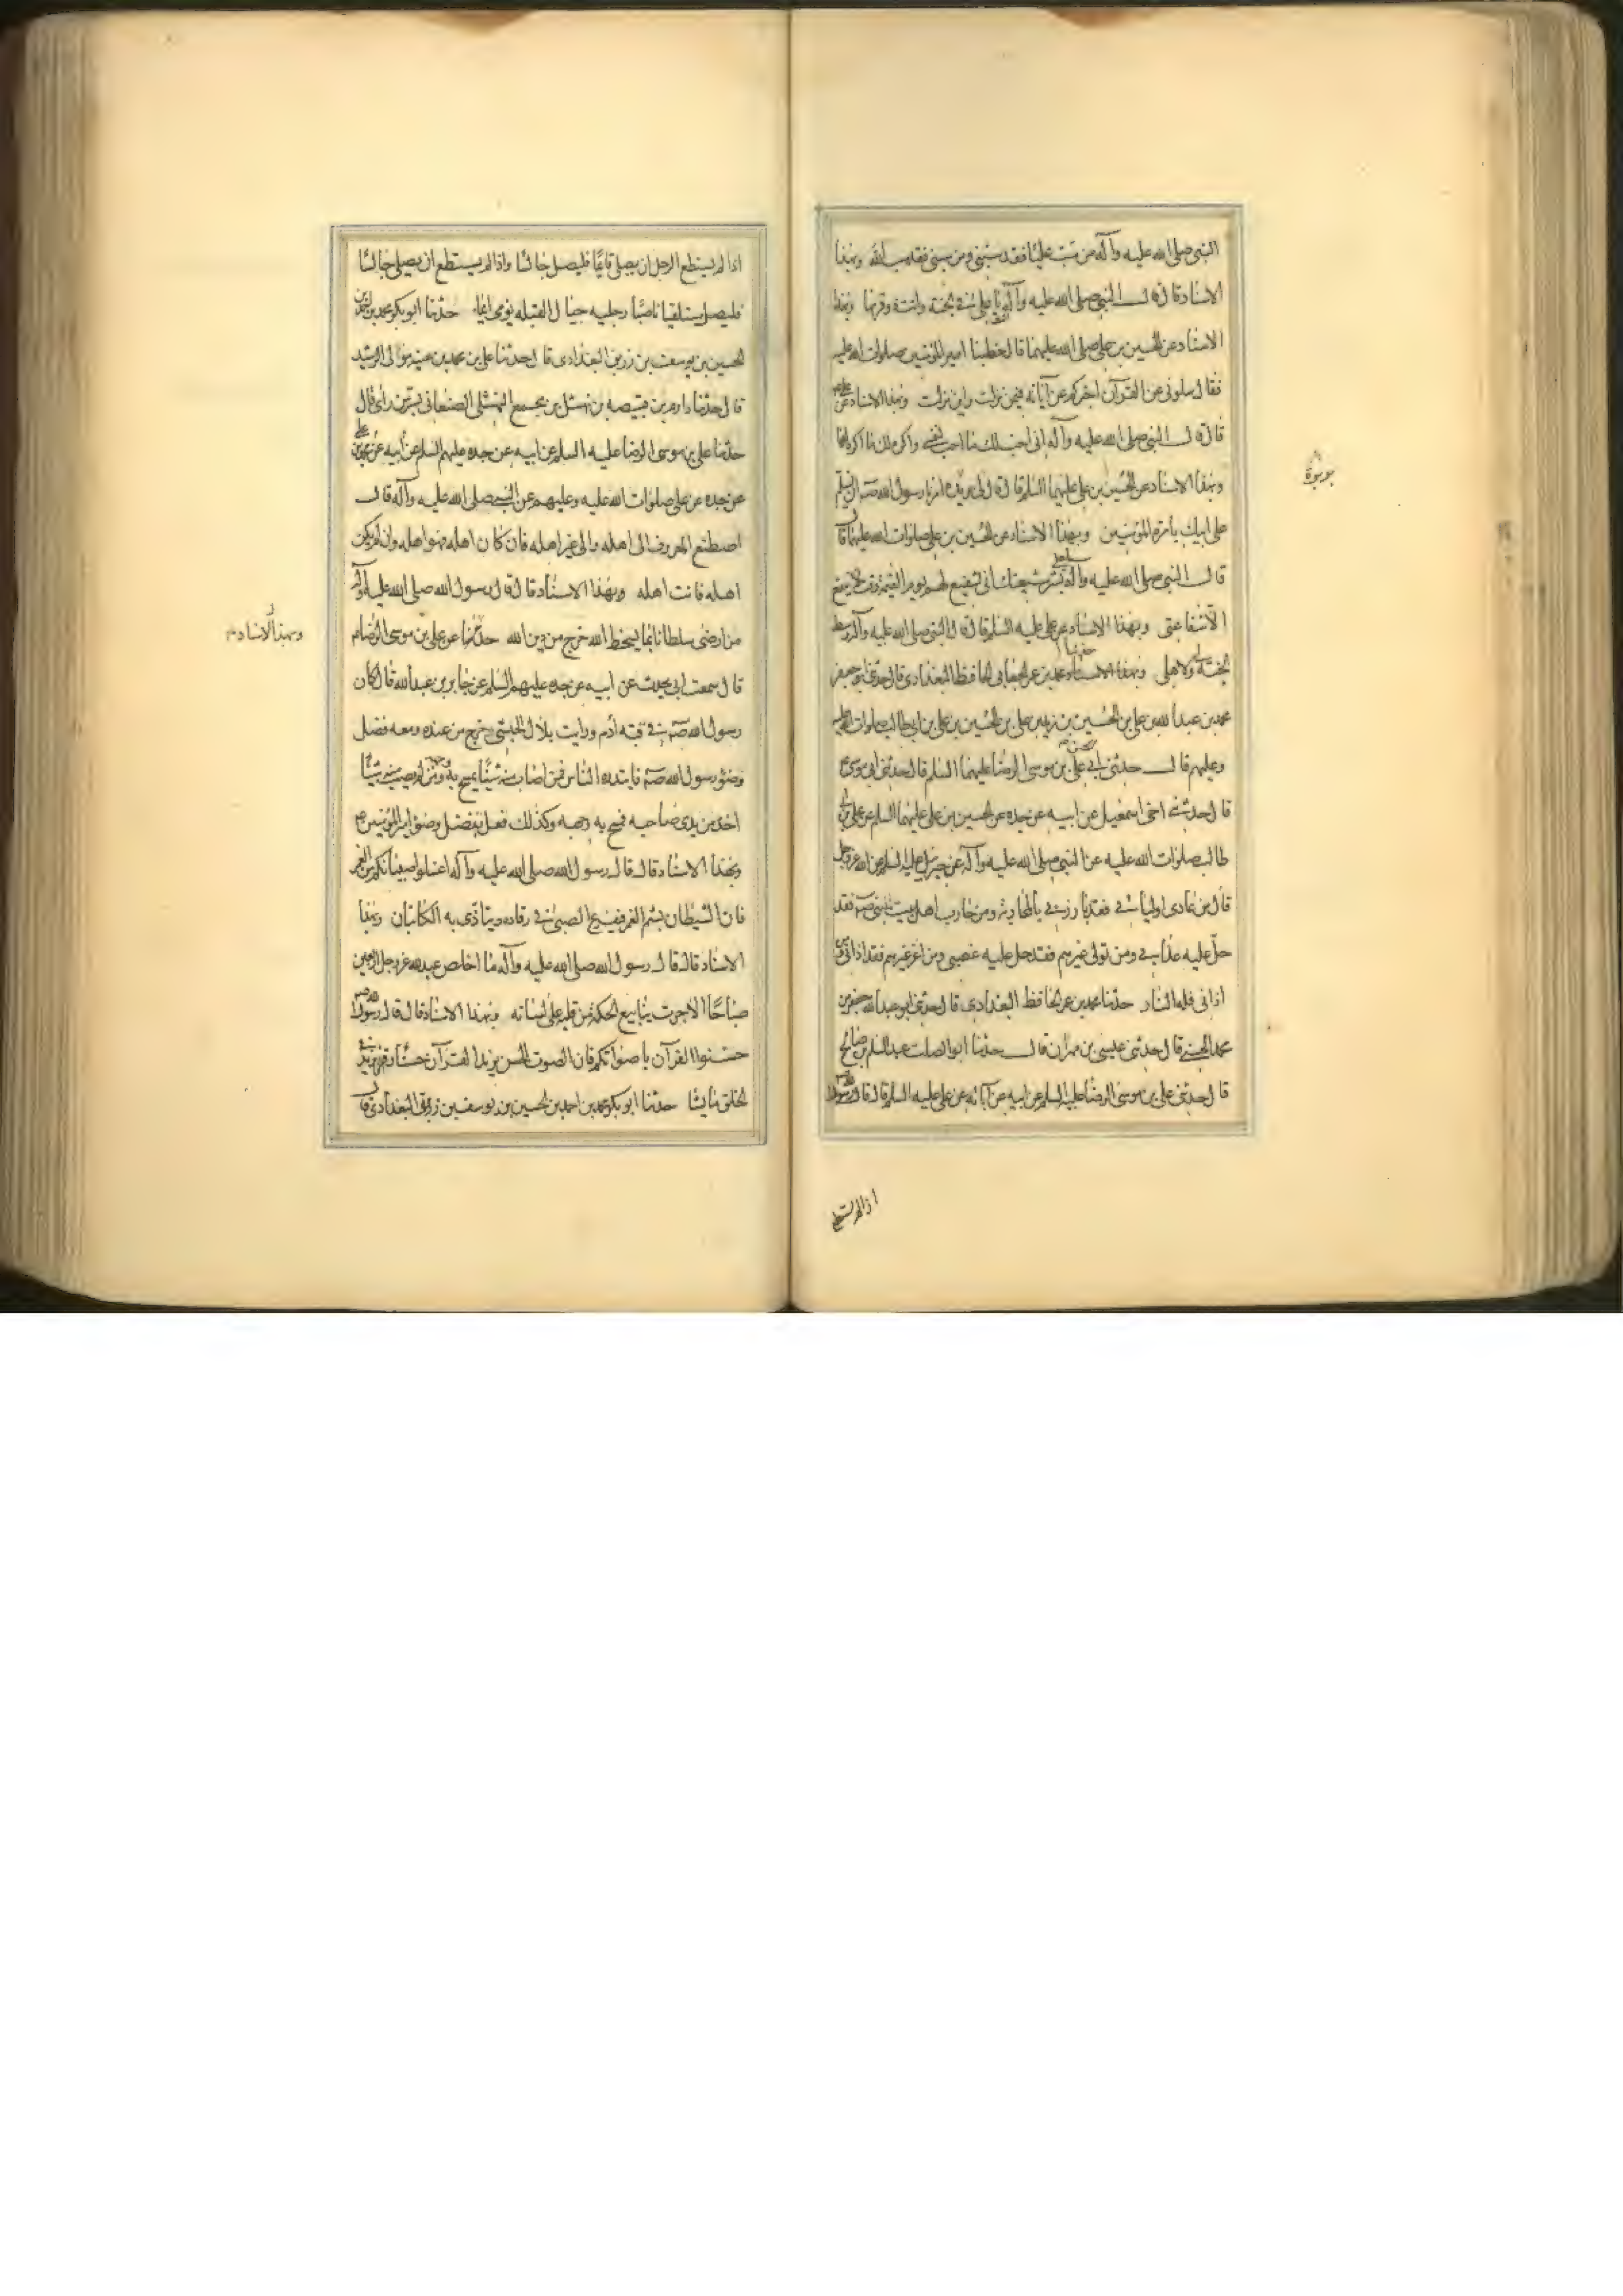 النبي صلى الله عليه وآله من سب عليّا فقد سبني ومن سبني فقد سب الله وبهذا
الاسناد قال قال النبي صلى الله عليه وآله يا علي في الجنة وانت وقرنيها وبهذا
الاسناد عن الحسين بن علي صلى الله عليهما قال خطبنا امير المؤمنين صلوات الله عليه
فقال سلوني عن القرآن اخبركم عن آياته فيمن نزلت واين نزلت وبهذا الاسناد عن
قال قال النبي صلى الله عليه وآله اني احب لك ما احب لنفسي واكره لك ما اكره لها
وبهذا الاسناد عن الحسين بن علي عليهما السلم قال قال لي بريده امرنا رسول الله صم ان نسلم
على ابيك بامرة المؤمنين وبهذا الاسناد عن الحسين بن علي صلوات الله عليهما قال
قال النبي صلى الله عليه وآله بشر شيعتك اني الشفيع لهم يوم القيمة وقت لا ينفع
الا شفاعتي وبهذا الاسناد عن علي عليه السلم قال قال النبي صلى الله عليه وآله وسط
الجنة لي ولاهلي حدثنا محمد بن عمر الجعابي الحافظ البغدادي قال حدثني ابو جعفر
محمد بن عبد الله بن علي بن الحسين بن زيد بن علي بن الحسين بن علي بن ابي طالب صلوات الله عليه
وعليهم قال حدثني ابي علي بن موسى الرضا عليهما السلم قال حدثني ابي موسى
قال حدثني اخي اسمعيل عن ابيه عن جده عن الحسين بن علي عليهما السلم عن علي بن ابي
طالب صلوات الله عليه عن النبي صلى الله عليه وآله عن جبرئيل عليه السلم عن الله عز وجل
قال من عادى اوليائي فقد بارزني بالمحاربة ومن حارب اهل بيت نبيي صم فقد
حل عليه عذابي ومن تولى غيرهم فقد حل عليه غضبي ومن اعز غيرهم فقد اذاني ومن
اذاني فله النار حدثنا محمد بن عمر الحافظ البغدادي قال حدثني ابو عبد الله جعفر بن
محمد الحسني قال حدثني عيسى بن مهران قال حدثنا ابو الصلت عبد السلم بن صالح
قال حدثني علي بن موسى الرضا عليه السلم عن ابيه عن آبائه عن علي عليه السلم قال قال رسول الله
اذا لم يستطع
اذا لم يستطع الرجل ان يصلي قايمًا فليصل جالسا واذا لم يستطع ان يصلي جالسًا
فليصل مستلقيا ناصبًا رجليه حيال القبله يومى ايماء حدثنا ابو بكر محمد بن احمد بن
الحسين بن يوسف بن زريق البغدادي قال حدثنا علي بن محمد بن عيينه مولى الرشيد
قال حدثنا دارم بن قبيصه بن نهشل بن مجمع النهشلي الصنعاني بسر من رأى قال
حدثنا علي بن موسى الرضا عليه السلم عن ابيه عن جده عليهم السلم عن ابيه عن محمد بن علي
عن جده عن علي صلوات الله عليه وعليهم عن النبي صلى الله عليه وآله قال
اصطنع المعروف الى اهله والى غير اهله فان كان اهله فهو اهله وان لم يكن
اهله فانت اهله وبهذا الاسناد قال قال رسول الله صلى الله عليه وآله
من ارضى سلطانا بما يسخط الله خرج من دين الله حدثنا عن علي بن موسى الرضا
وبهذا الاسناد
قال سمعت ابي يحدث عن ابيه عن جده عليهم السلم عن جابر بن عبد الله قال كان
رسول الله صم في قبه ادم ورايت بلال الحبشي وخرج من عنده ومعه فضل
وضؤ رسول الله صم فابتدره الناس فمن اصاب منه شيئًا يمسح به وجهه ومن لم يصب منه شيئًا
اخذ من يدي صاحبه فمسح به وجهه وكذلك فعل بفضل وضوء امير المؤمنين
وبهذا الاسناد قال قال رسول الله صلى الله عليه وآله اغسلوا صبيانكم من الغمر
فان الشيطان يشم الغمر فيفزع الصبي في رقاده ويتاذى به الكاتبان وبهذا
الاسناد قال قال رسول الله صلى الله عليه وآله ما اخلص عبد لله عز وجل اربعين
صباحًا الا جرت ينابيع الحكمة من قلبه على لسانه وبهذا الاسناد قال قال رسول الله
حسنوا القرآن باصواتكم فان الصوت الحسن يزيد القرآن حسنًا وقرء يزيد في
الخلق ما يشا حدثنا ابو بكر محمد بن احمد بن الحسين بن يوسف بن زريق البغدادي قال